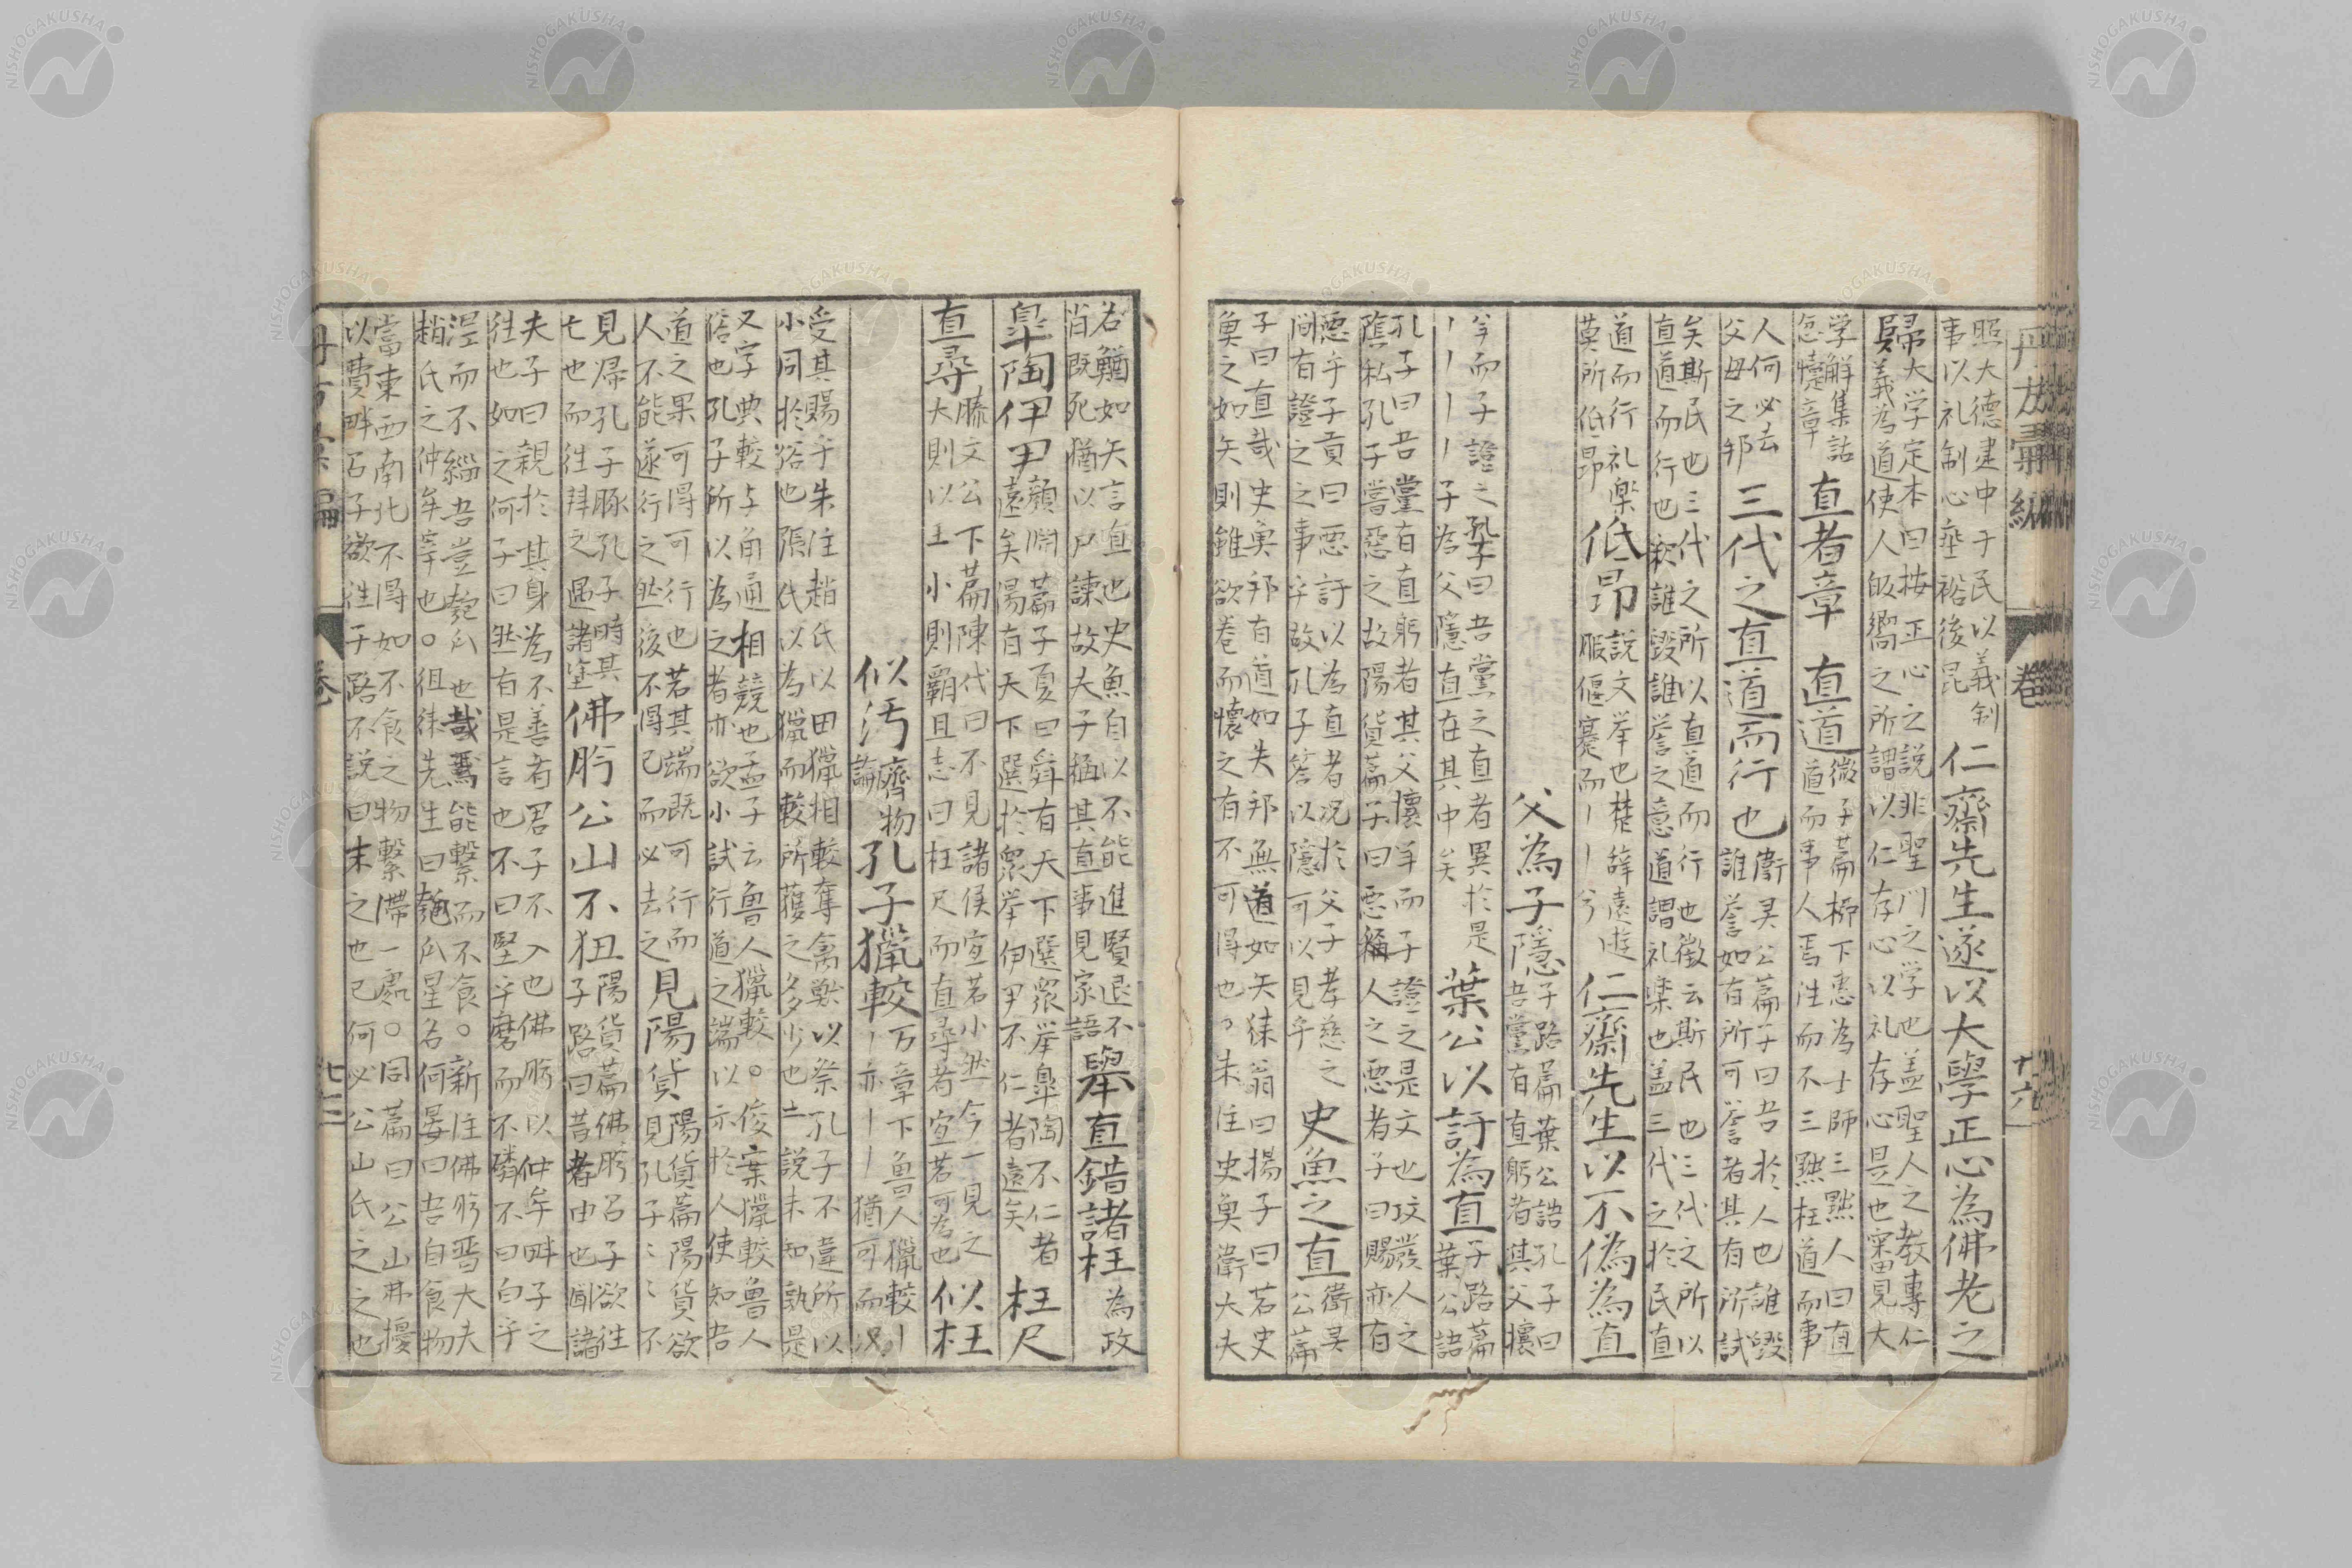 照大德建中于民以義制
事以礼制心垂裕後昆
仁齋先生遂以大學正心為佛老之
歸大学定本曰按正心之説非聖門之学也盖聖人之教專仁
義為道使人皈嚮之所謂以仁存心以礼存心是也
学解集詁
怠懥章
直者章
直道
微子篇柳下恵為士師三黜人曰直
道而事人焉往而不三黜枉道而事
人何必去
父母之邦
三代之直道而行也
衛灵公篇子曰吾於人也誰毀
誰誉如有所可誉者其有所試
矣斯民也三代之所以直道而行也徴云斯民也三代之所以
直道而行也釈誰毀誰誉之意道謂礼楽也盖三代之於民直
道而行礼楽
莫所低昻
低昻
説文挙也楚辞遠遊
服偃蹇而丨丨兮
仁齋先生以不偽為直
父為子隱
子路篇葉公語孔子曰
吾黨有直躬者其父攘
羊而子證之孔子曰吾黨之直者異於是
丨丨丨丨子為父隱直在其中矣
葉公以訐為直
子路篇
葉公語
孔子曰吾黨有直躬者其父攘羊而子證之是文也攻發人之
隱私孔子嘗惡之故陽貨篇子曰悪稱人之悪者子曰賜亦有
悪乎子貢曰悪訐以為直者况於父子孝慈之
間有證之之事乎故孔子答以隱可以見乎
史魚之直
衛灵
公篇
子曰直哉史魚邦有道如矢邦無道如矢徠翁曰揚子曰若史
魚之如矢則雖欲卷而懷之有不可得也朱注史魚衛大夫
名鰌如矢言直也史魚自以不能進賢退不
肖既死猶以尸諫故夫子稱其直事見家語
舉直錯諸枉
為政
皐陶伊尹
顔淵篇子夏曰舜有天下選衆挙皐陶不仁者
遠矣湯有天下選於衆挙伊尹不仁者遠矣
枉尺
直尋
滕文公下篇陳代曰不見諸侯宜若小然今一見之
大則以王小則覇且志曰枉尺而直尋者宜若可為也
似枉
似汚
齊物
論
孔子獵較
万章下魯人獵較丨
丨亦丨丨猶可而况
受其賜乎朱注趙氏以田獵相較奪禽獣以祭孔子不違所以
小同於俗也張氏以為獵而較所獲之多少也二説未知孰是
又字典較与角通相競也孟子云魯人獵較○俊案獵較魯人
俗也孔子所以為之者亦欲小試行道之端以示於人使知吾
道之果可得可行也若其端既可行而
人不能遂行之然後不得已而必去之
見陽貨
陽貨篇陽貨欲
見孔子〻〻不
見帰孔子豚孔子時其
亡也而往拜之遇諸塗
佛肸公山不狃
陽貨篇佛肸召子欲往
子路曰昔者由也聞諸
夫子曰親於其身為不善者君子不入也佛肸以仲牟畔子之
往也如之何子曰然有是言也不曰堅乎磨而不磷不曰白乎
涅而不緇吾豈匏瓜也哉焉能繋而不食○新注佛肸晋大夫
趙氏之仲牟宰也○徂徠先生曰匏瓜星名何晏曰吾自食物
當東西南北不得如不食之物繋滞一處○同篇曰公山弗擾
以費畔召子欲往子路不説曰末之也已何必公山氏之之也